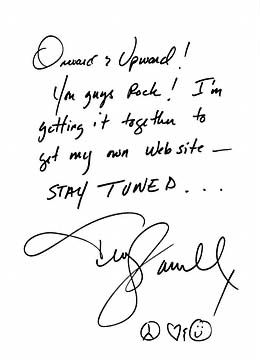 Onward & Upward!
You guys Rock! I'm
getting it together to
get my own website —
STAY TUNED...